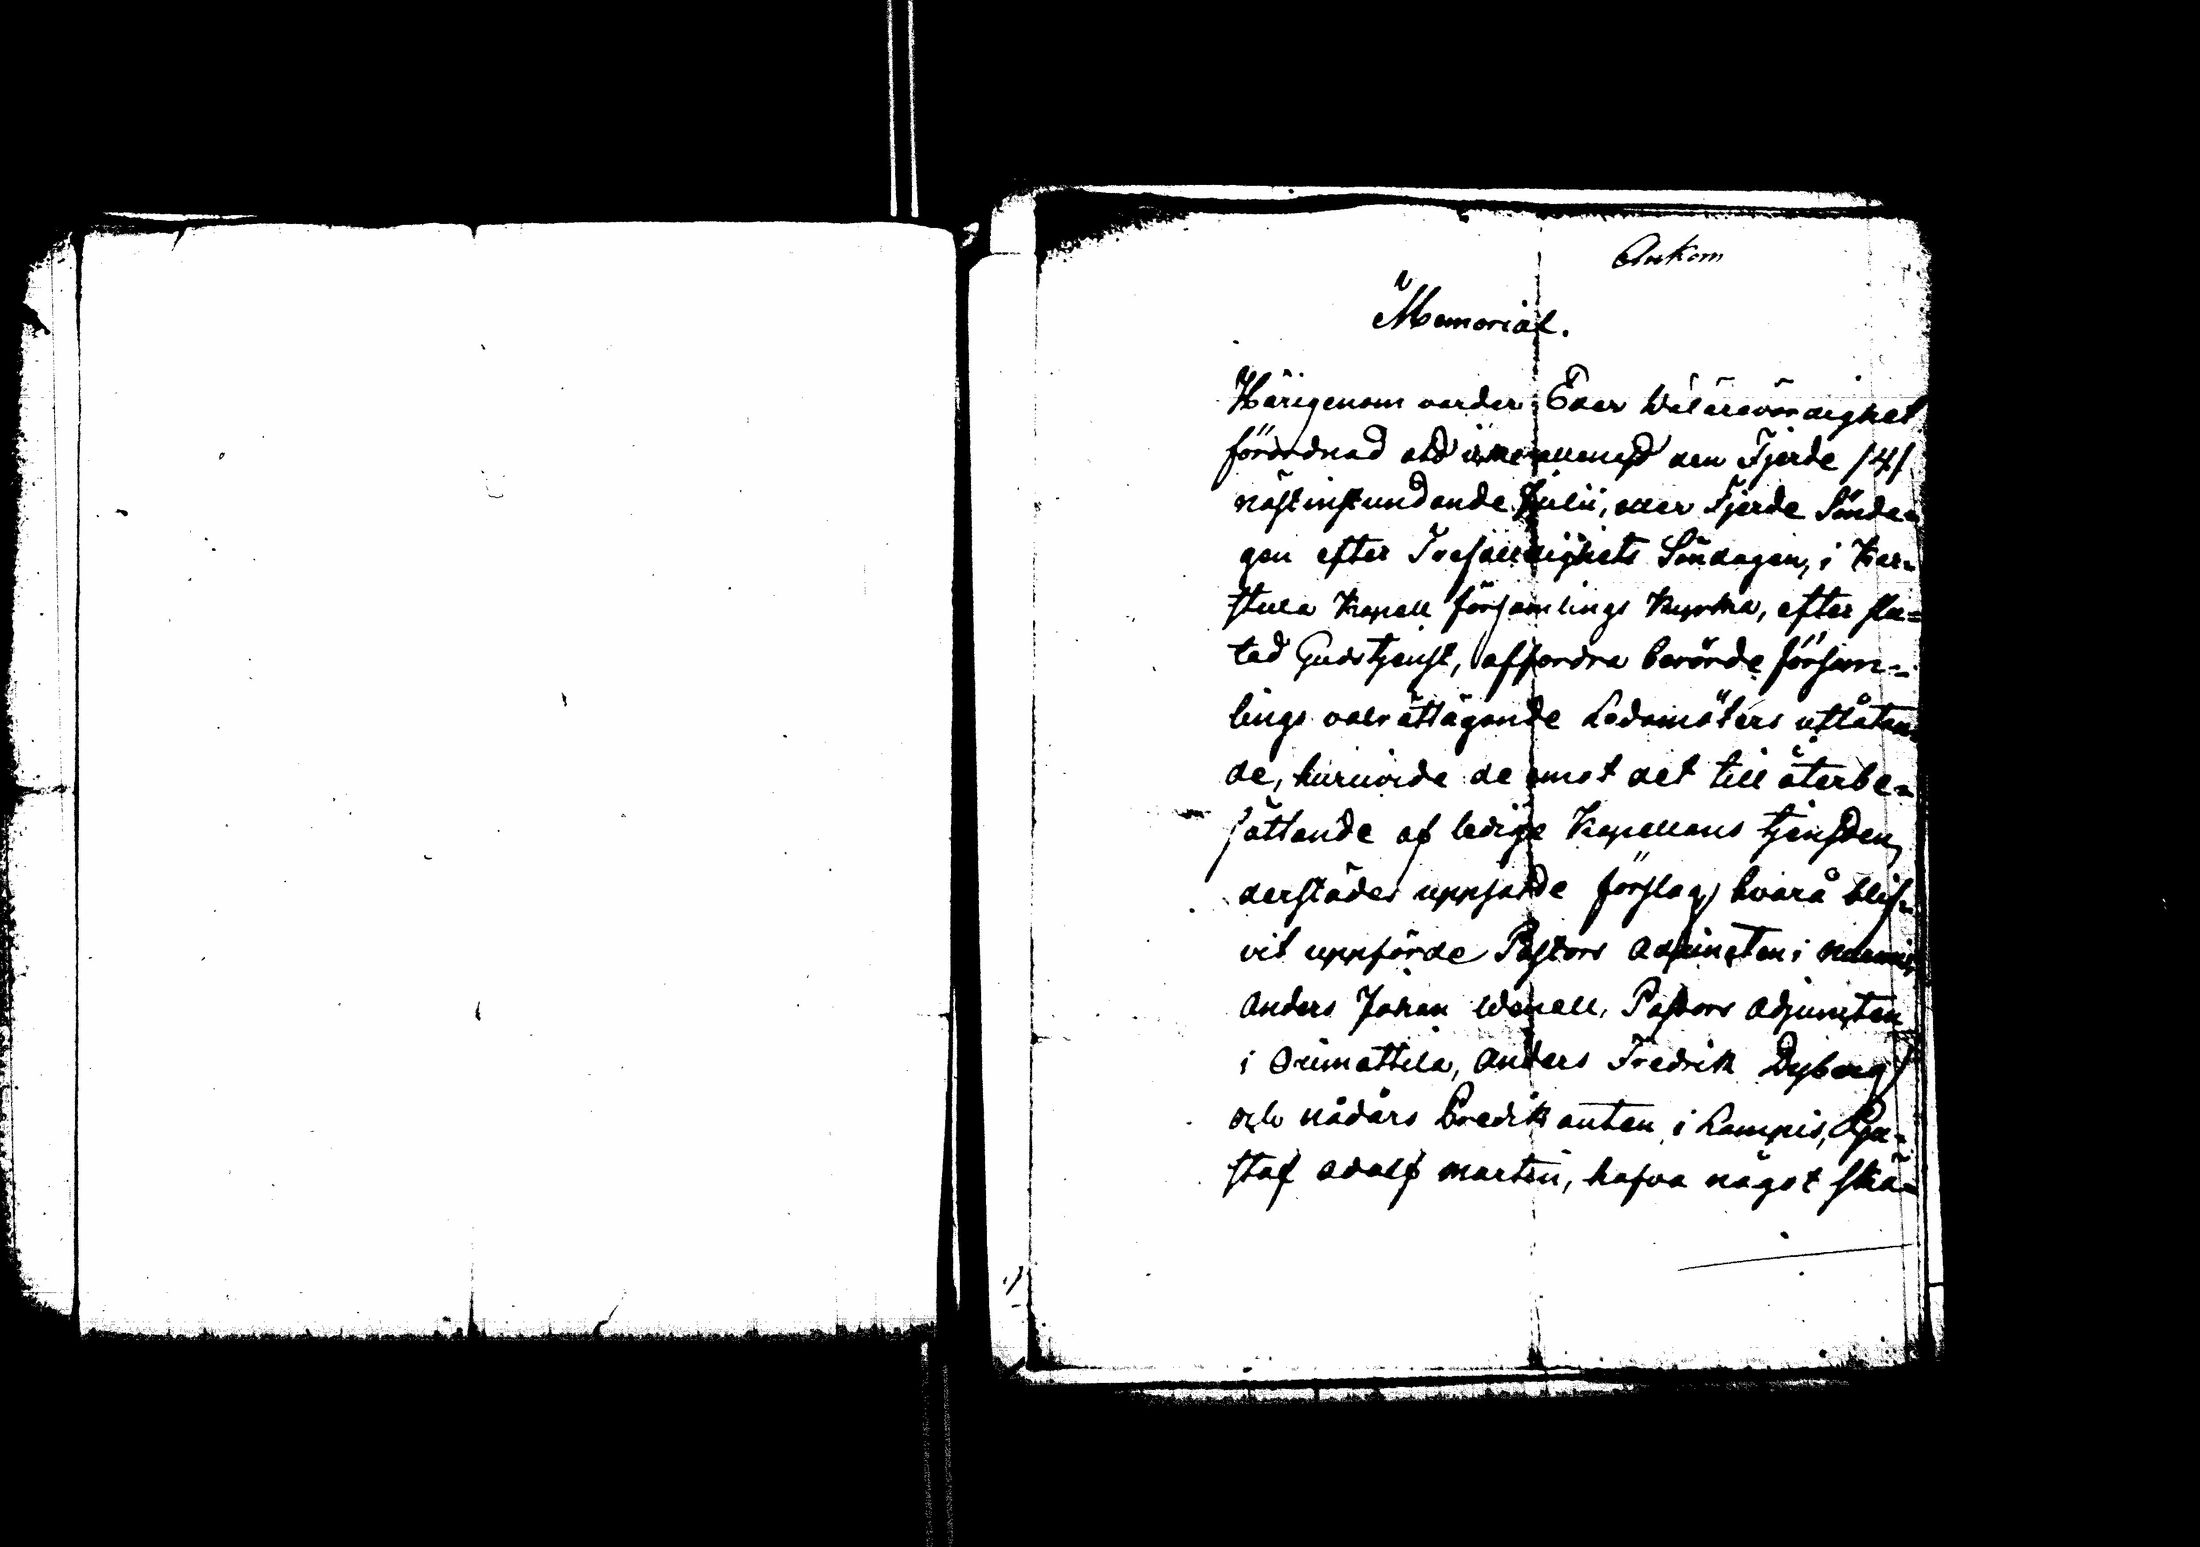 Ankom
Memorial.
Härigenom varder Eder Välärevördighet
förordnad att den Fjerde /4/
nästinstundande Julii, eller Fjerde Sönda-
gen efter Trefalldighets Söndagen, i Kar-
stula Kapell församlings Kyrka, efter slu-
tad Gudstjenst, affordra berörde försam-
lings valrättägande Ledamöters utlåtan-
de, huruvida de emot det till återbe-
sättande af lediga Kapellans tjensten
derstädes uppsatte förslag, hvarå blif-
vit uppförde Pastors Adjuncten i
Anders Johan Wenell, Pastors Adjuncten
i Orimattila, Anders Fredrik Dyberg
och nådårs Predikanten i Lampis, Gu-
staf Adolf Martin, hafva något skä-